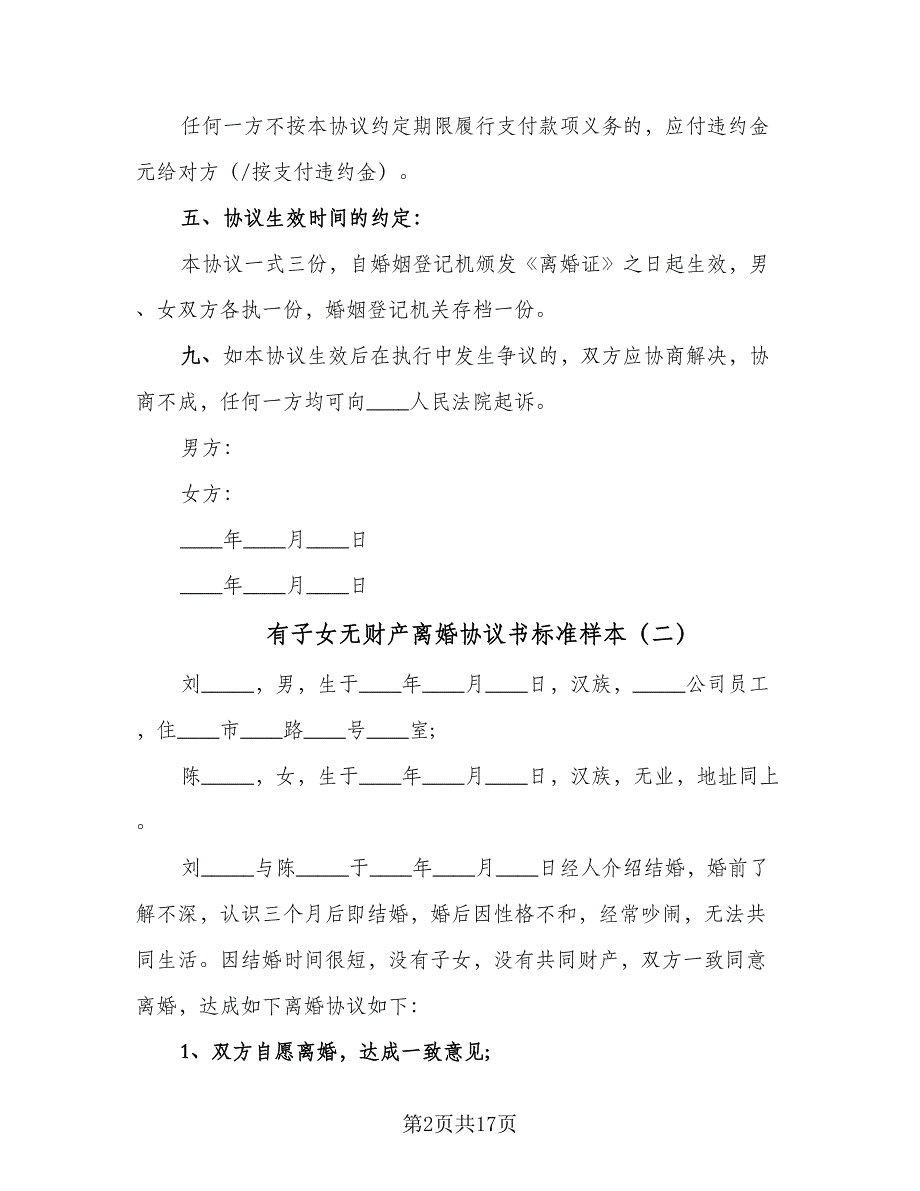 任何一方不按本协议约定期限履行支付款项义务的，应付违约金
元给对方（/按支付违约金）。
五、协议生效时间的约定：
本协议一式三份，自婚姻登记机颁发《离婚证》之日起生效，男
、女双方各执一份，婚姻登记机关存档一份。
九、如本协议生效后在执行中发生争议的，双方应协商解决，协
商不成，任何一方均可向____人民法院起诉。
男方：
女方：
____年____月____日
____年____月____日
有子女无财产离婚协议书标准样本（二）
刘_____，男，生于____年____月____日，汉族，_____公司员工
，住____市____路____号____室;
陈_____，女，生于____年____月____日，汉族，无业，地址同上
。
刘_____与陈_____于____年____月____日经人介绍结婚，婚前了
解不深，认识三个月后即结婚，婚后因性格不和，经常吵闹，无法共
同生活。因结婚时间很短，没有子女，没有共同财产，双方一致同意
离婚，达成如下离婚协议如下：
1、双方自愿离婚，达成一致意见;
第2页共17页